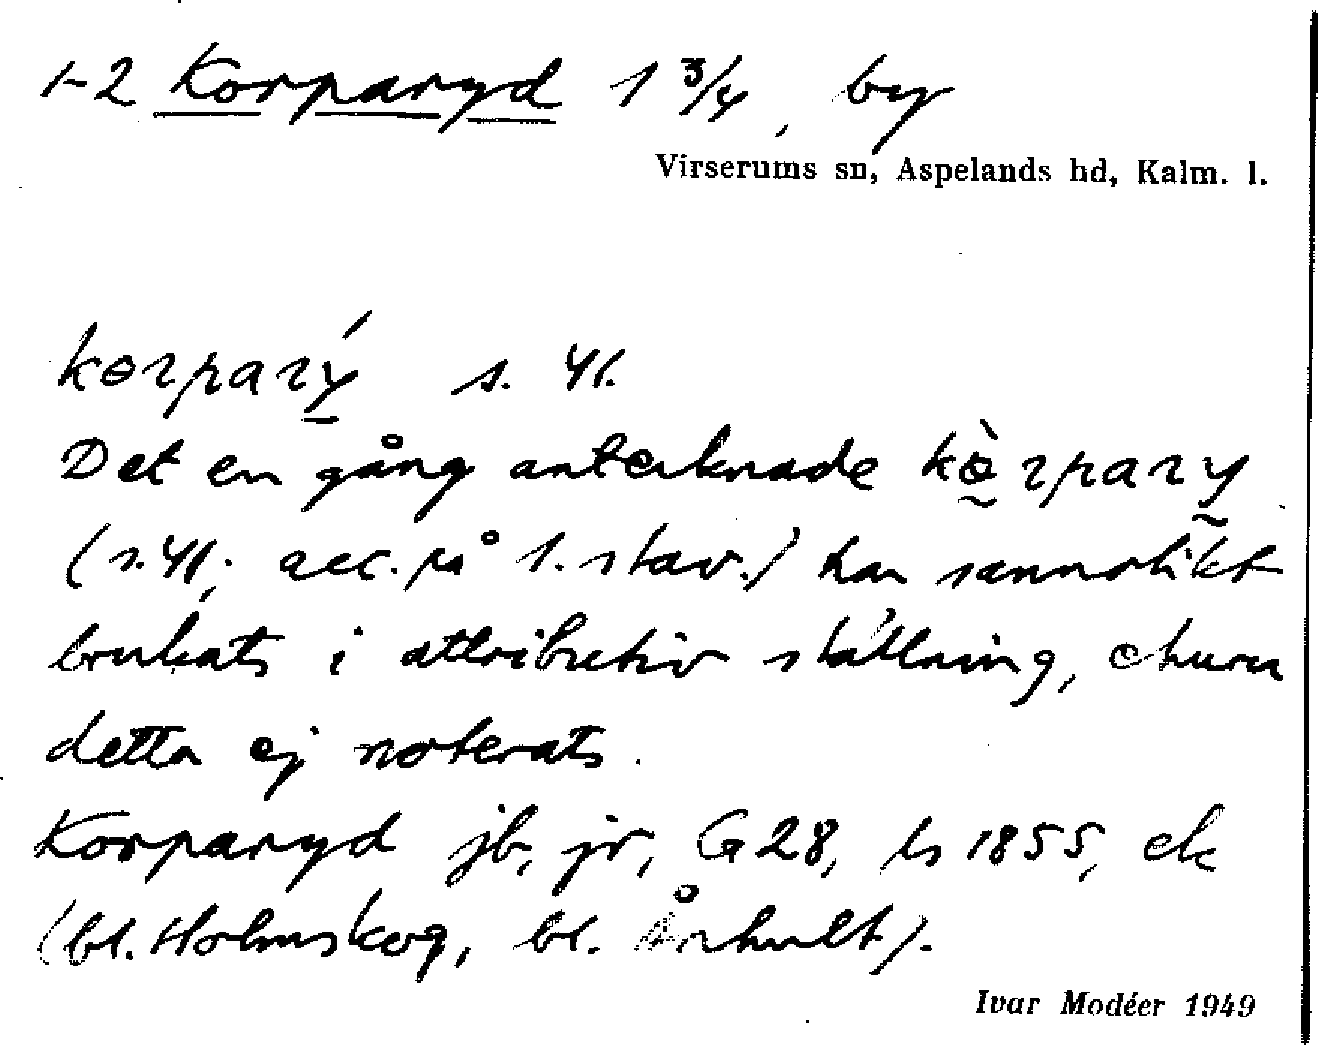 1-2 Korparyd 1 3/4, by
Virserums sn, Aspelands hd, Kalm. l.
kɵrparý s. 41.
Det en gång antecknade kɵ̀rpary
(s. 41; acc. på 1. stav.) har sannolikt
brukats i attributiv ställning, ehuru
detta ej noterats.
Korparyd jb, jr, G 28, ls 1855, ek
(bl. Holmskog, bl. Århult).
Ivar Modéer 1949